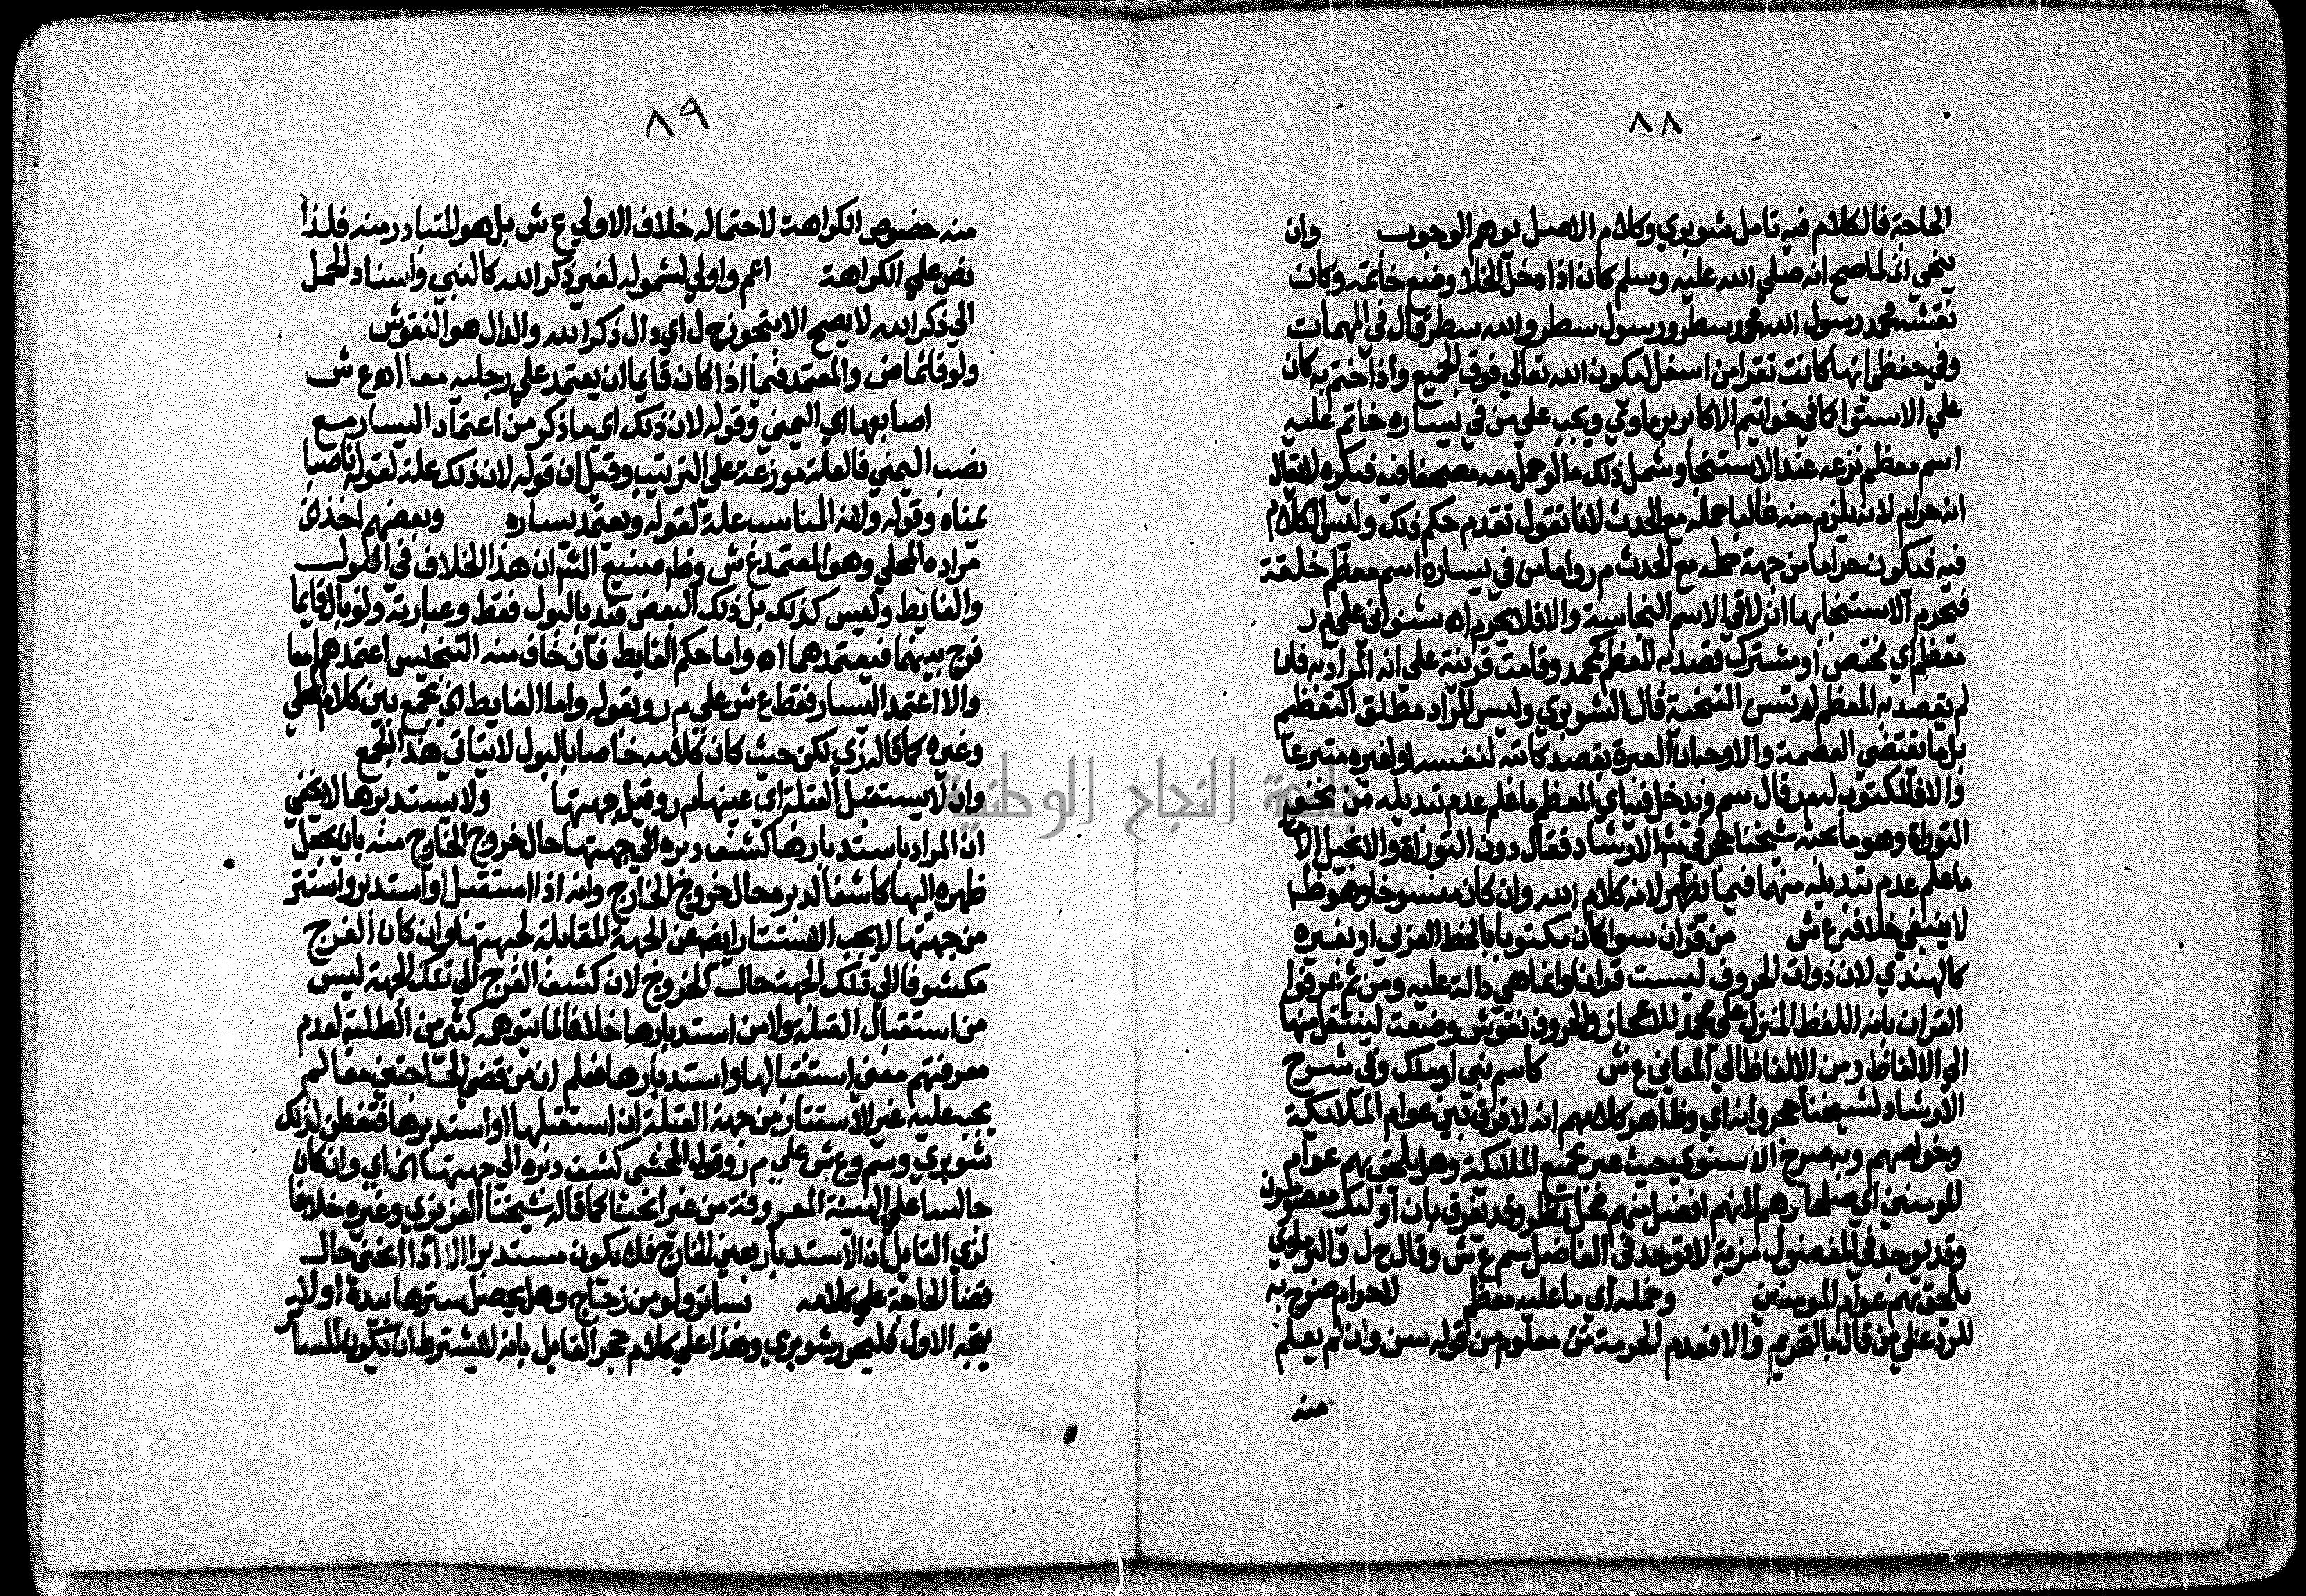 ٨٨
الحاجة فالكلام فيه تامل شوبري وكلام الاصل يوهم الوجوب وان
ينحي اي لما صح انه صلي الله عليه وسلم كان اذا دخل الخلا وضع خاتمه وكان
نقشه محمد رسول الله محمد سطر ورسول سطر والله سطر قال في المهمات
وفي حفظي انها كانت تقرا من اسفل ليكون الله تعالي فوق الجميع واذا ختم به كان
علي الاستوا كما في خواتيم الاكابر برماوي ويجب علي من في يساره خاتم عليه
اسم معظم نزعه عند الاستنجا وشمل ذلك ما لو حمل معه مصحفا فيه فيكره لا يقال
انه حرام لانه يلزم منه غالبا حمله مع الحدث لانا نقول تقدم حكم ذلك وليس الكلام
فيه فيكون حراما من جهة حمله مع الحدث م ر واما من في يساره اسم معظم خلقة
فيحرم الاستنجا بها ان لاقي الاسم النجاسة والا فلا يحرم اه شنواني علي م ر
معظم اي مختص او مشترك قصد به المعظم كمحمد وقامت قرينة علي انه المراد به فان
لم يقصد به المعظم لم تسن التنحية قال الشوبري وليس المراد مطلق التعظيم
بل ما يقتضي العصمة والاوجه ان العبرة بقصد كاتبه لنفسه او لغيره متبرعا
والا فالمكتوب له م ر قال سم ويدخل فيه اي المعظم ما علم عدم تبديله من نحو
التوراة وهو ما بحثه شيخنا حجر في شم الارشاد فقال دون التوراة والانجيل الا
ما علم عدم تبديله منهما فيما يظهر لانه كلام الله وان كان منسوخا وهو ظ
لا ينبغي خلافه ع ش من قران سوا كان مكتوبا بالخط العربي او بغيره
كالهندي لان ذوات الحروف ليست قرانا وانما هي دالة عليه ومن ثم عرفوا
القران بانه اللفظ المنزل علي محمد للاعجاز والحروف نقوش وضعت لينتقل منها
الي الالفاظ ومن الالفاظ الي المعاني ع ش كاسم نبي او ملك وفي شرح
الارشاد لشيخنا حجر وانه اي وظاهر كلامهم انه لا فرق بين عوام الملائكة
وخواصهم وبه صرح الاسنوي حيث عبر بجميع الملائكة وهل يلحق بهم عوام
المومنين اي صلحاوهم لانهم افضل منهم محل نظر وقد يفرق بان اولئك معصومون
وقد يوجد في المفضول مزية لا توجد في الفاضل سم ع ش وقال ح ل قال البرماوي
يلحق بهم عوام المومنين وحمله اي ما عليه معظم لا حرام صرح به
للرد علي من قال بالتحريم والا فعدم الحرمة معلوم من قوله سن وان لم يعلم
منه
٨٩
منه خصوص الكراهة لاحتماله خلاف الاولي ع ش بل هو المتبادر منه فلذا
نص علي الكراهة اعم واولي لشموله لغير ذكر الله كالنبي واسناد الحمل
الي ذكر الله لا يصح الا بتجوز ح ل اي دال ذكر الله والدال هو النقوش
ولو قائما ض والمعتمد فيما اذا كان قايما ان يعتمد علي رجليه معا اه ع ش
اصابعها اي اليمني وقوله لان ذلك اي ما ذكر من اعتماد اليسار مع
نصب اليمني فالعلة موزعة علي الترتيب وقيل ان قوله لان ذلك علة لقوله ناصبا
يمناه وقوله ولانه المناسب علة لقوله ويعتمد يساره وبعضهم اخذ اي
مراده المحلي وهو المعتمد ع ش وظ صنيع الش ان هذا الخلاف في البول
والغايط وليس كذلك بل ذلك البعض قيد بالبول فقط وعبارته ولو بال قايما
فرج بينهما فيعتمدهما اه واما حكم الغايط فان خاف منه التنجيس اعتمدهما معا
والا اعتمد اليسار فقط ع ش علي م ر وبقوله واما الغايط اي يجمع بين كلام المحلي
وغيره كما قاله زي لكن حيث كان كلامه خاصا بالبول لا يتاتي هذا الجمع
وان لا يستقبل القبلة اي عينها م ر وقيل جهتها ولا يستدبرها لا يخفي
ان المراد باستدبارها كشف دبره الي جهتها حال خروج الخارج منه بان يجعل
ظهره اليها كاشفا لدبره حال خروج الخارج وانه اذا استقبل او استدبر واستتر
من جهتها لا يجب الاستتار ايض عن الجهة المقابلة لجهتها وان كان الفرج
مكشوفا الي تلك الجهة حال الخروج لان كشف الفرج الي تلك الجهة ليس
من استقبال القبلة ولا من استدبارها خلافا لما يتوهمه كثير من الطلبة لعدم
معرفتهم معني استقبالها واستدبارها فعلم ان من قضي الحاجتين معا لم
يجب عليه غير الاستتار من جهة القبلة ان استقبلها او استدبرها فتفطن لذلك
شوبري وسم وع ش علي م ر وقول المحشي كشف دبره الي جهتها اي وان كان
جالسا علي الهيئة المعروفة من غير انحنا كما قاله شيخنا العزيزي وغيره خلافا
لزي القايل ان الاستدبار بعين الخارج فلا يكون مستدبرا الا اذا انحني حال
قضا الحاجة علي كلامه بساتر ولو من زجاج وهل يحصل سترها بيده او لا
يتجه الاول فليحرر شوبري وهذا علي كلام حجر القايل بانه لا يشترط ان يكون للسا